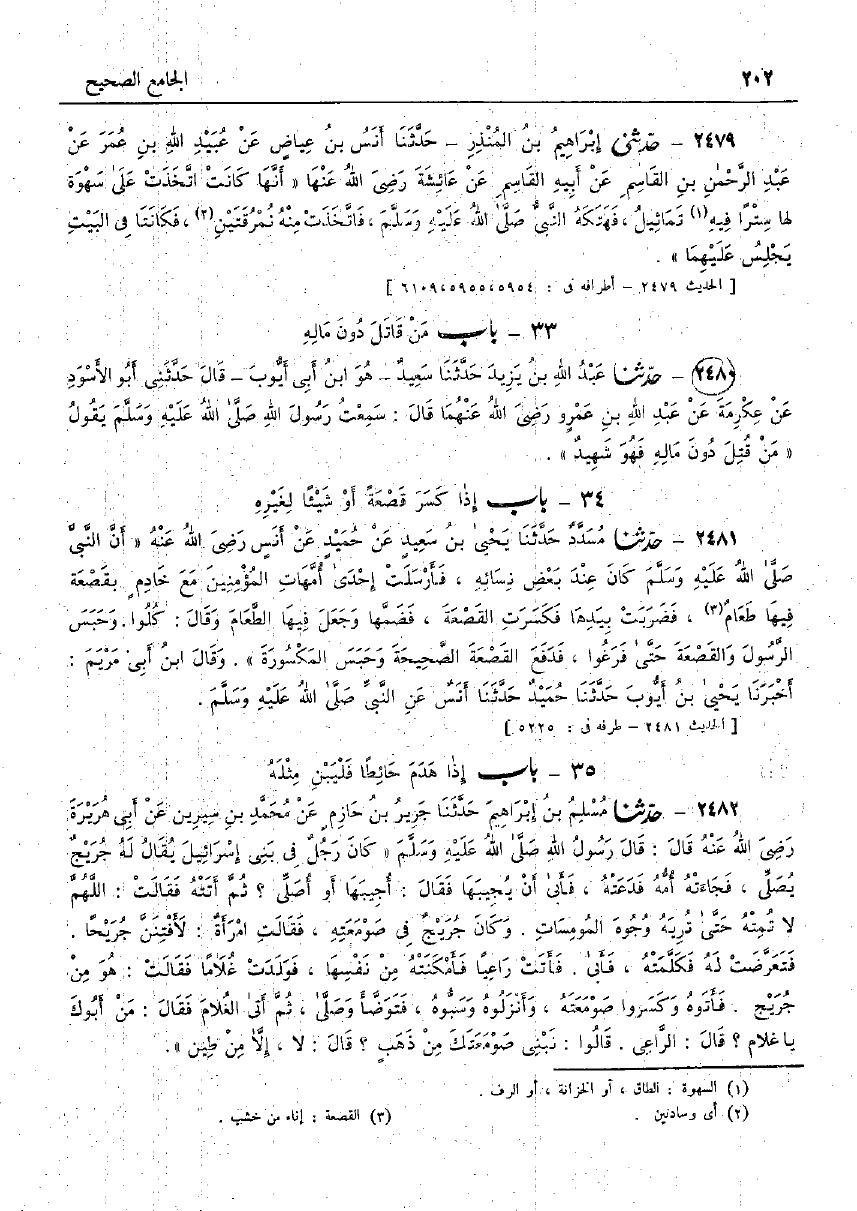 ٢٠٢ الجامع الصحيح
٢٤٧٩ – حدّثنى إِبْرَاهِيمُ بنُ المُنْذِرِ – حَدَّثَنَا أَنَسُ بنُ عِياضٍ عَنْ عُبَيْدِ اللهِ بنِ عُمَرَ عَنْ
عَبْدِ الرَّحْمٰنِ بنِ القَاسِمِ عَنْ أَبِيهِ القَاسِمِ عَنْ عَائِشَةَ رَضِىَ اللهُ عَنْهَا « أَنَّهَا كَانَتْ اتَّخَذَتْ عَلَىٰ سَهْوَة
لها سِتْرًا فِيهِ(١) تَمَاثِيلُ ، فَهَتَكَهُ النَّبِىُّ صَلَّىٰ اللهُ عَلَيْهِ وَسَلَّمَ ، فَاتَّخَذَتْ مِنْهُ نُمْرُقَتَيْنِ(٢) ، فَكَانَتَا فى البَيْتِ
يَجْلِسُ عَلَيْهِمَا » .
[ الحديث ٢٤٧٩ – أطرافه فى : ٥٩٥٤، ٥٩٥٥، ٦١٠٩ ]
٣٣ – باب مَنْ قَاتَلَ دُونَ مَالِهِ
٢٤٨٠ – حدّثنا عَبْدُ اللهِ بنُ يَزِيدَ حَدَّثَنَا سَعِيدٌ – هُوَ ابنُ أَبِى أَيُّوبَ – قَالَ حَدَّثَنِى أَبُو الأَسْوَدِ
عَنْ عِكْرِمَةَ عَنْ عَبْدِ اللهِ بنِ عَمْرٍو رَضِىَ اللهُ عَنْهُمَا قَالَ : سَمِعْتُ رَسُولَ اللهِ صَلَّىٰ اللهُ عَلَيْهِ وَسَلَّمَ يَقُولُ
« مَنْ قُتِلَ دُونَ مَالِهِ فَهُوَ شَهِيدٌ » .
٣٤ – باب إِذَا كَسَرَ قَصْعَةً أَوْ شَيْئًا لِغَيْرِهِ
٢٤٨١ – حدّثنا مُسَدَّدٌ حَدَّثَنَا يَحْيىٰ بنُ سَعِيدٍ عَنْ حُمَيْدٍ عَنْ أَنَسٍ رَضِىَ اللهُ عَنْهُ « أَنَّ النَّبِىَّ
صَلَّىٰ اللهُ عَلَيْهِ وَسَلَّمَ كَانَ عِنْدَ بَعْضِ نِسَائِهِ ، فَأَرْسَلَتْ إِحْدَىٰ أُمَّهَاتِ المُؤْمِنِينَ مَعَ خَادِمٍ بِقَصْعَة
فِيهَا طَعَامٌ(٣) ، فَضَرَبَتْ بِيَدِهَا فَكَسَرَتِ القَصْعَةَ ، فَضَمَّها وَجَعَلَ فِيهَا الطَّعَامَ وَقَالَ : كُلُوا. وَحَبَسَ
الرَّسُولَ وَالقَصْعَةَ حَتَّىٰ فَرَغُوا ، فَدَفَعَ القَصْعَةَ الصَّحِيحَةَ وَحَبَسَ المَكْسُورَةَ » . وَقَالَ ابنُ أَبِى مَرْيَمَ :
أَخْبَرَنَا يَحْيىٰ بنُ أَيُّوبَ حَدَّثَنَا حُمَيْدٌ حَدَّثَنَا أَنَسٌ عَنِ النَّبِىِّ صَلَّىٰ اللهُ عَلَيْهِ وَسَلَّمَ .
[ الحديث ٢٤٨١ – طرفه فى : ٥٢٢٥ ]
٣٥ – باب إِذَا هَدَمَ حَائِطًا فَلْيَبْنِ مِثْلَهُ
٢٤٨٢ – حدّثنا مُسْلِمُ بنُ إِبْرَاهِيمَ حَدَّثَنَا جَرِيرُ بنُ حَازِمٍ عَنْ مُحَمَّدِ بنِ سِيرِين عَنْ أَبِى هُرَيْرَةَ
رَضِىَ اللهُ عَنْهُ قَالَ : قَالَ رَسُولُ اللهِ صَلَّىٰ اللهُ عَلَيْهِ وَسَلَّمَ « كَانَ رَجُلٌ فى بَنِى إِسْرَائِيلَ يُقَالُ لَهُ جُرَيْجٌ
يُصَلِّى ، فَجَاءَتْهُ أُمُّهُ فَدَعَتْهُ ، فَأَبىٰ أَنْ يُجِيبَهَا فَقَالَ : أُجِيبُهَا أَو أُصَلِّى ؟ ثُمَّ أَتَتْهُ فَقَالَتْ : اللَّهُمَّ
لا تُمِتْهُ حَتَّىٰ تُرِيَهُ وُجُوهَ المُومِسَاتِ . وَكَانَ جُرَيْجٌ فِى صَوْمَعَتِهِ ، فَقَالَتِ امْرَأَةٌ : لَأَفْتِنَنَّ جُرَيْجًا .
فَتَعَرَّضَتْ لَهُ فَكَلَّمَتْهُ ، فَأَبىٰ . فَأَتَتْ رَاعِيًا فَأَمْكَنَتْهُ مِنْ نَفْسِهَا ، فَوَلَدَتْ غُلَامًا فَقَالَتْ : هُوَ مِنْ
جُرَيْجٍ . فَأَتَوهُ وَكَسَرُوا صَوْمَعَتَهُ ، وَأَنْزَلُوهُ وَسَبُّوهُ ، فَتَوَضَّأَ وَصَلَّىٰ ، ثُمَّ أَتَىٰ الغُلَامَ فَقَالَ : مَنْ أَبُوكَ
يا غلام ؟ قَالَ : الرَّاعِى . قَالُوا : نَبْنِى صَوْمَعَتَكَ مِنْ ذَهَبٍ ؟ قَالَ : لا ، إِلَّا مِنْ طِينٍ » .
(١) السهوة : الطاق ، أو الخزانة ، أو الرف .
(٢) أى وسادتين . (٣) القصعة : إناء من خشب .